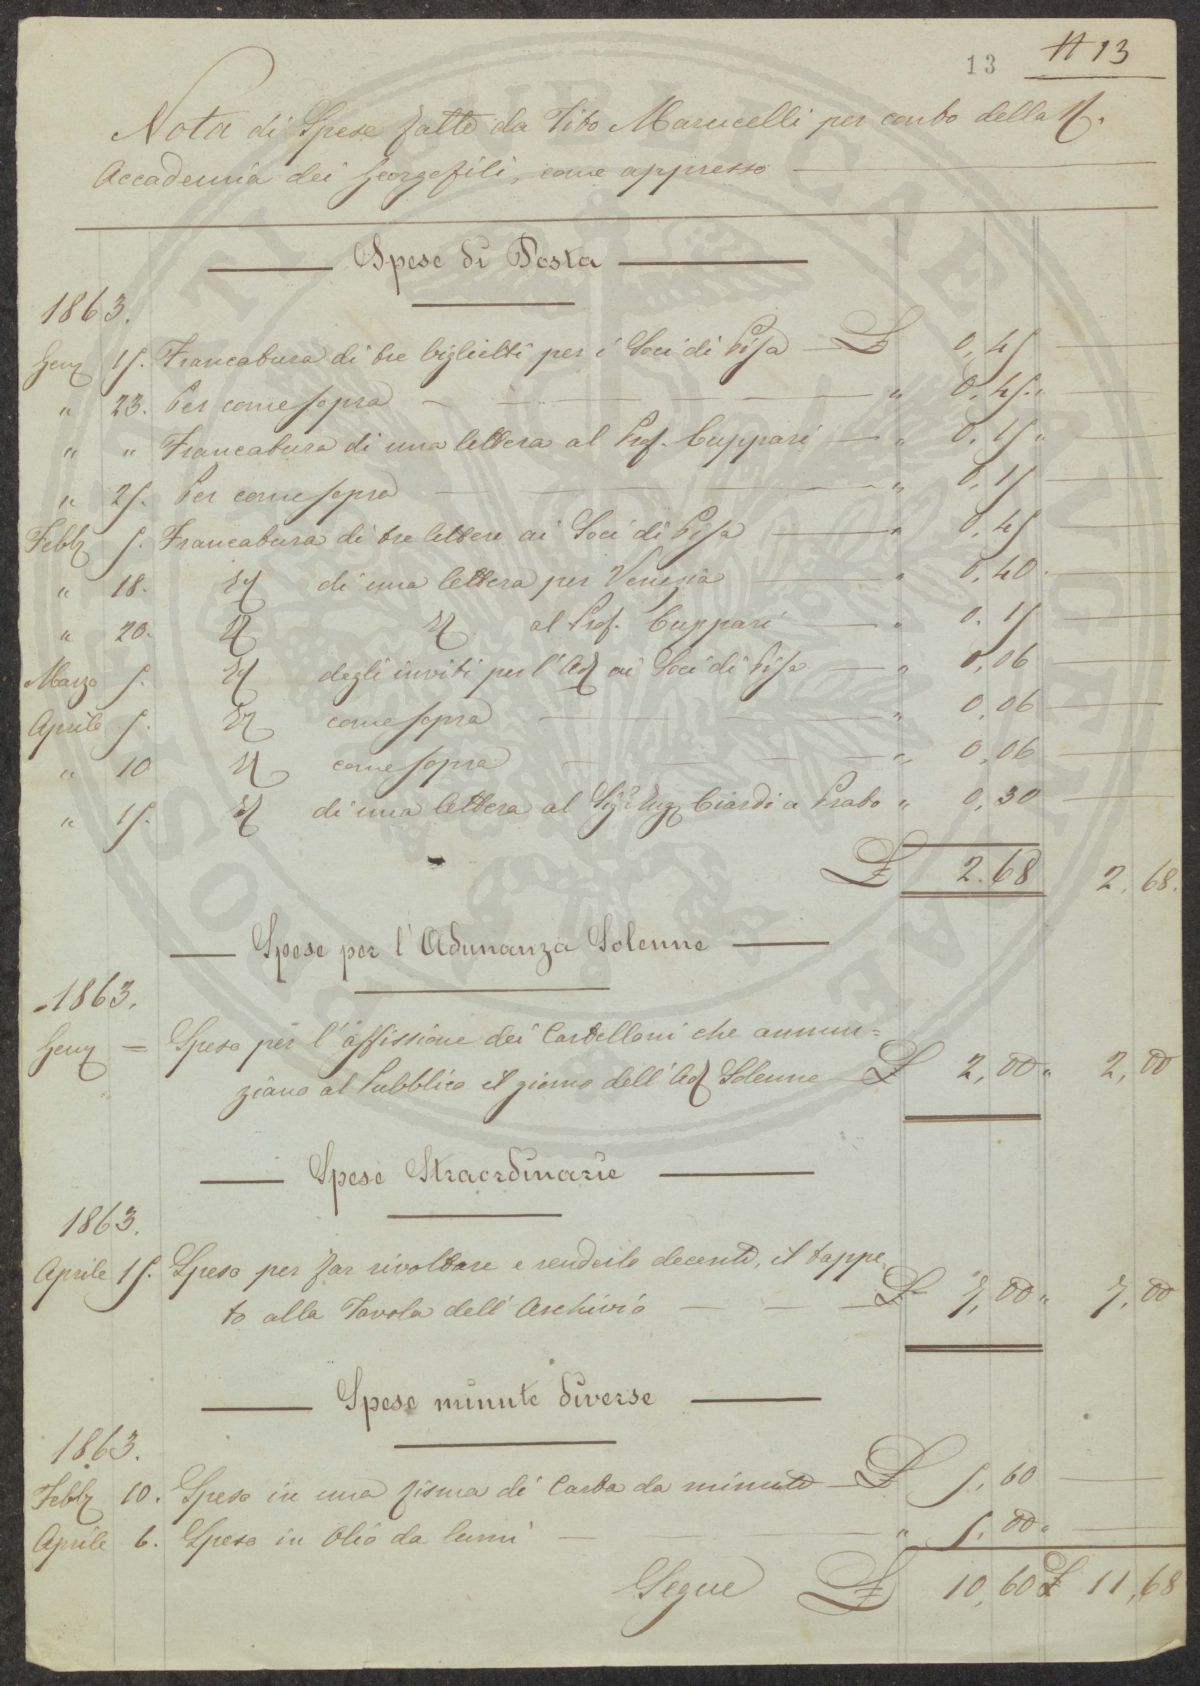 13 N 13
Nota di Spese fatte da Tito Marucelli per conto della R.
Accademia dei Georgofili, come appresso
Spese di Posta
1863.
Genn 15. Francatura di tre biglietti per i Soci di Pisa £ 0,45
" 23. Per come sopra " 0,45 "
" " Francatura di una lettera al Prof. Cuppari " 0,15 "
" 25. Per come sopra " 0,15
Febb 5. Francatura di tre lettere ai Soci di Pisa " 0,45
" 18. Id di una lettera per Venezia " 0,40
" 20. Id Id al Prof. Cuppari " 0.15
Marzo 5. Id degli inviti per l'Ad ai Soci di Pisa " 0,06
Aprile 5. Id come sopra " 0,06
" 10 Id come sopra " 0,06
" 15. Id di una lettera al Sigr Eug Ciardi a Prato " 0,30
£ 2.68 2,68.
Spese per l'Adunanza Solenne
1863.
Genn = Spesa per l'affissione dei Cartelloni che annun=
ziano al Pubblico il giorno dell'Ad Solenne £ 2,00 " 2,00
Spese Straordinarie
1863.
Aprile 15. Spesa per far rivoltare e renderlo decente, il tappe
to alla Tavola dell'Archivio £ 7,00 " 7,00
Spese minute diverse
1863.
Febb 10. Spesa in una risma di Carta da minute £ 5,60
Aprile 6. Spesa in Olio da lumi " 5,00 "
Segue £ 10,60 £ 11,68